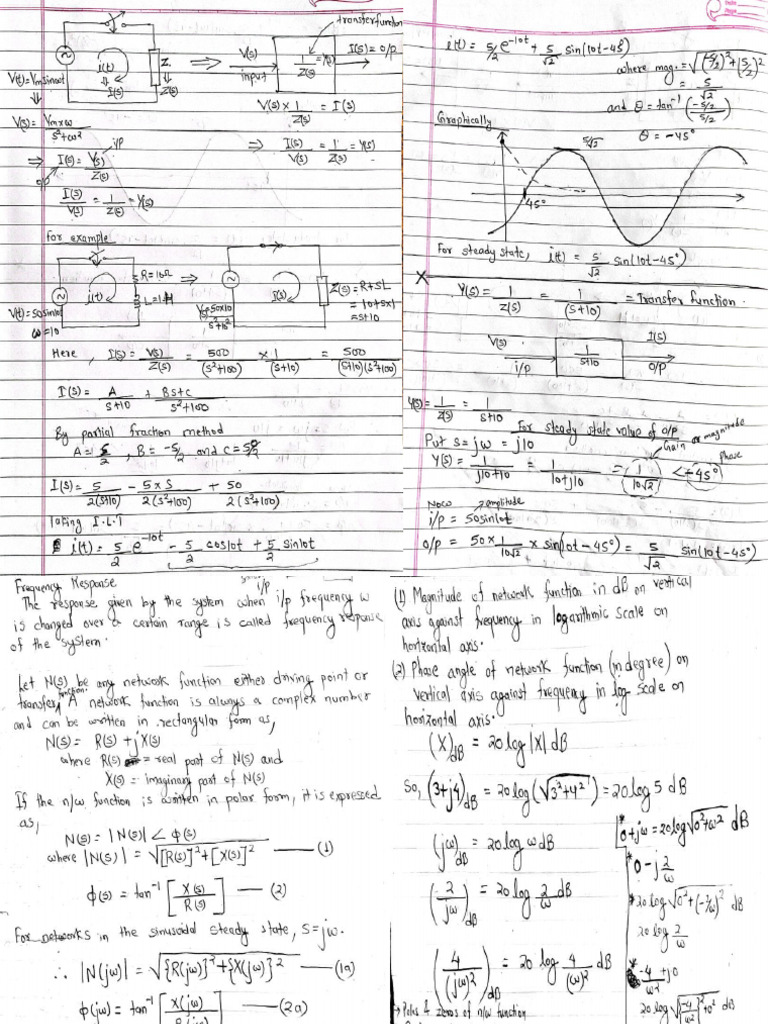 transferfunction
V(t)=Vmsinωt
i(t)
I(s)
Z
Z(s)
V(s)
input
1/Z(s) = Y(s)
I(s)=o/p
V(s) × 1/Z(s) = I(s)
V(s) = Vm×ω / s²+ω²
i/p
⇒ I(s) = V(s)/Z(s)
o/p
⇒ I(s)/V(s) = 1/Z(s) = Y(s)
I(s)/V(s) = 1/Z(s) = Y(s)
for example
R=10Ω
L=1H
i(t)
V(t)=50sin10t
ω=10
I(s)
V(s)=50×10 / s²+10²
Z(s)=R+sL
=10+s×1
=s+10
Here, I(s) = V(s)/Z(s) = 500/(s²+100) × 1/(s+10) = 500/(s+10)(s²+100)
I(s) = A/s+10 + Bs+C/s²+100
By partial fraction method
A = 5/2, B = -5/2 and C = 50/2
I(s) = 5/2(s+10) - 5×s/2(s²+100) + 50/2(s²+100)
Taking I.L.T
i(t) = 5/2 e^-10t - 5/2 cos10t + 5/2 sin10t
i(t) = 5/2 e^-10t + 5/√2 sin(10t-45°)
where mag. = √(-5/2)²+(5/2)²
= 5/√2
and θ = tan⁻¹(-5/2 / 5/2)
θ = -45°
Graphically
5/√2
45°
For steady state, i(t) = 5/√2 sin(10t-45°)
Y(s) = 1/Z(s) = 1/(s+10) = Transfer function.
V(s)
i/p
1/s+10
I(s)
o/p
Y(s) = 1/Z(s) = 1/s+10
For steady state value of o/p
Put s = jω = j10
Gain or magnitude
Phase
Y(s) = 1/j10+10 = 1/10+j10 = 1/10√2 <-45°
Now
amplitude
i/p = 50sin10t
o/p = 50 × 1/10√2 × sin(10t-45°) = 5/√2 sin(10t-45°)
Frequency Response
The response given by the system when i/p frequency ω
is changed over a certain range is called frequency response
of the system.
Let N(s) be any network function either driving point or
transfer function. A network function is always a complex number
and can be written in rectangular form as,
N(s) = R(s) + jX(s)
where R(s) = real part of N(s) and
X(s) = imaginary part of N(s)
If the n/w function is written in polar form, it is expressed
as,
N(s) = |N(s)| ∠ φ(s)
where |N(s)| = √[R(s)]²+[X(s)]² — (1)
φ(s) = tan⁻¹[X(s)/R(s)] — (2)
For networks in the sinusoidal steady state, s=jω.
∴ |N(jω)| = √{R(jω)}²+{X(jω)}² — (1a)
φ(jω) = tan⁻¹[X(jω)/R(jω)] — (2a)
(1) Magnitude of network function in dB on vertical
axis against frequency in logarithmic scale on
horizontal axis.
(2) Phase angle of network function (in degree) on
vertical axis against frequency in log scale on
horizontal axis.
(X)dB = 20log|X|dB
So, (3+j4)dB = 20log(√3²+4²) = 20log5 dB
(jω)dB = 20logω dB
(2/jω)dB = 20log 2/ω dB
(4/(jω)²)dB = 20 log 4/(ω)² dB
→ Poles & zeros of n/w function
* 0+jω = 20log√0²+ω² dB
* 0-j2/ω
* 20log√0²+(-2/ω)² dB
20log 2/ω
* -4/ω² + j0
20log√(-4/ω²)²+0² dB